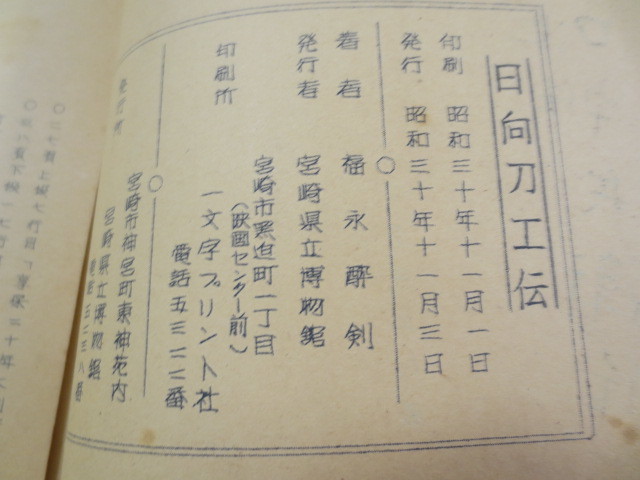 日向刀工伝
印刷 昭和三十年十一月一日
発行 昭和三十年十一月三日
著者 福永酔剣
発行者 宮崎県立博物館
印刷所 宮崎市黒迫町一丁目
(映画センター前)
一文字プリント社
電話五三二二番
発行所 宮崎市神宮町東神苑内
宮崎県立博物館